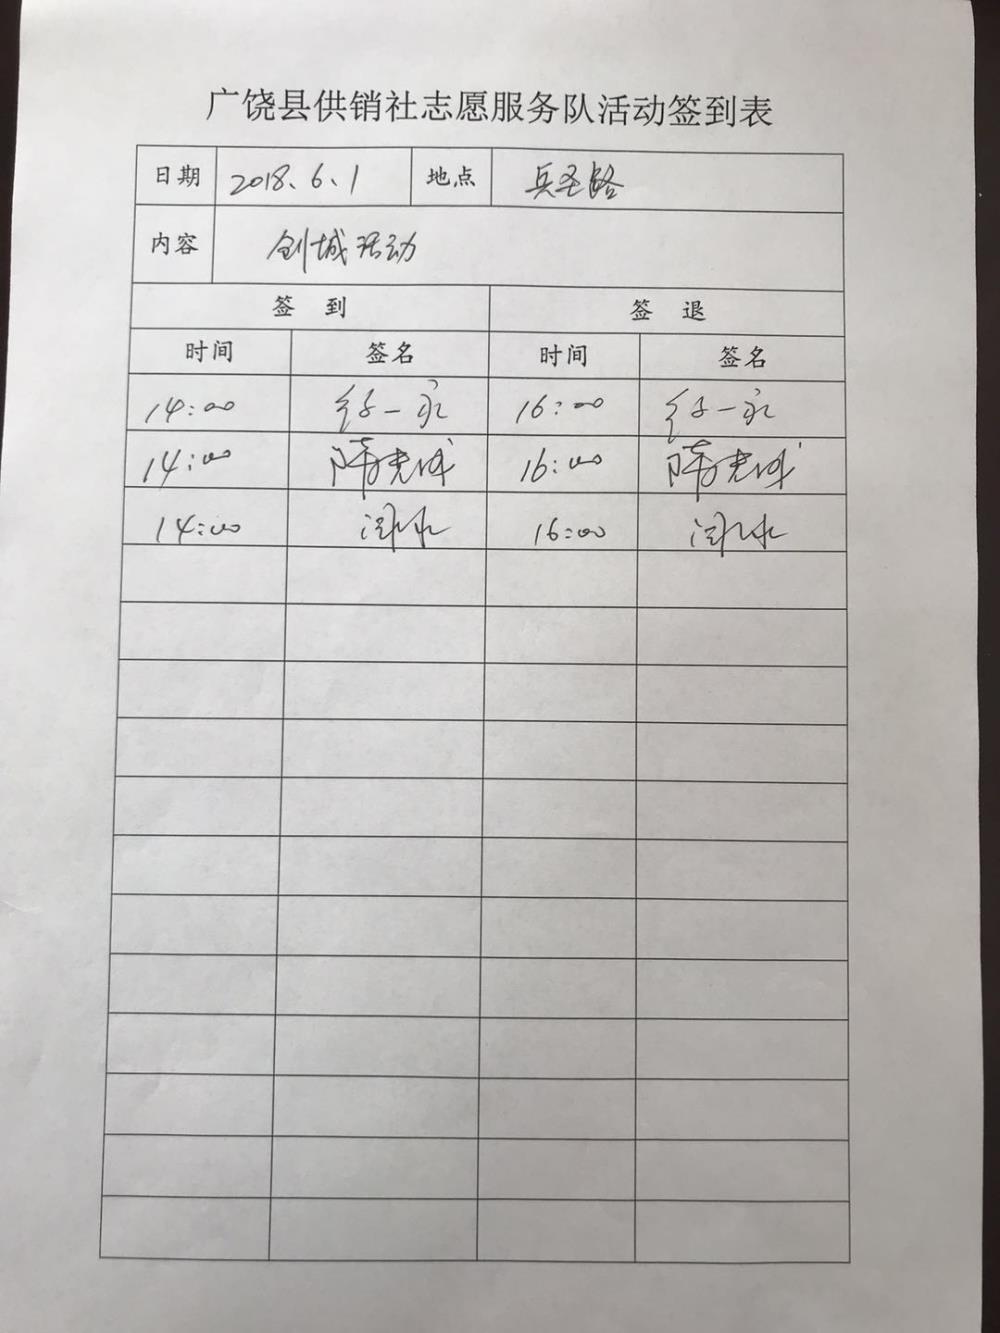 广饶县供销社志愿服务队活动签到表
日期 2018.6.1 地点 兵圣路
内容 创城活动
签 到 签 退
时间 签名 时间 签名
14:00 16:00
14:00 隋光成 16:00 隋光成
14:00 16:00